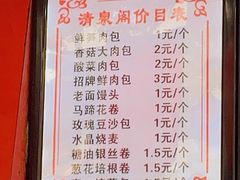 清泉阁价目表
鲜笋肉包 1元/个
香菇大肉包 2元/个
酸菜肉包 1元/个
招牌鲜肉包 1元/个
老面馒头 1元/个
马蹄花卷 1元/个
玫瑰豆沙包 1元/个
水晶烧麦 1元/个
糖油银丝卷 1.5元/个
葱花培根卷 1.5元/个